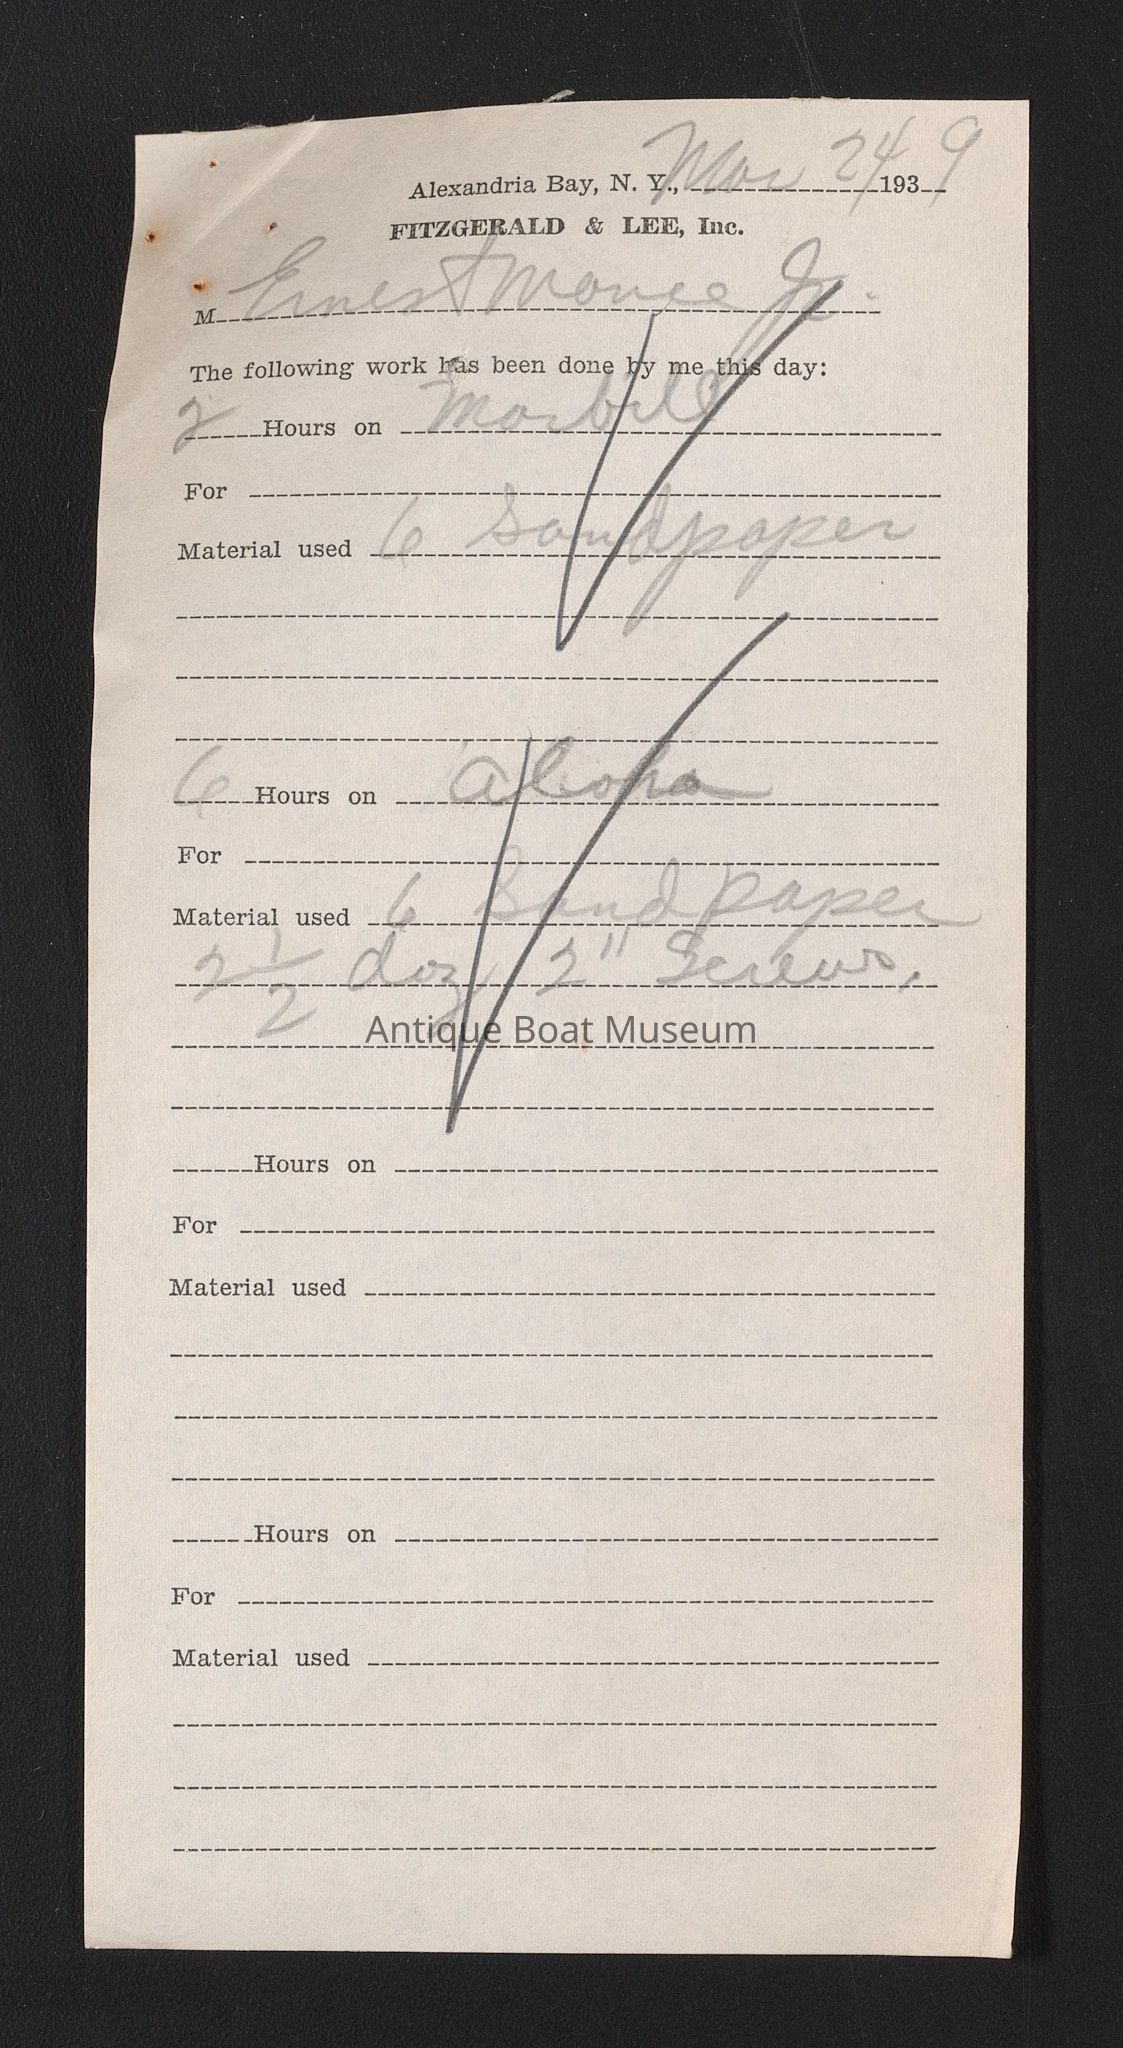 Alexandria Bay, N. Y., Mar 24 1939
FITZGERALD & LEE, Inc.
M Ernest Jr.
The following work has been done by me this day:
2 Hours on
For
Material used 6 Sandpaper
6 Hours on Aloha
For
Material used 6 Sandpaper
2 1/2 doz 2" Screws.
Antique Boat Museum
Hours on
For
Material used
Hours on
For
Material used